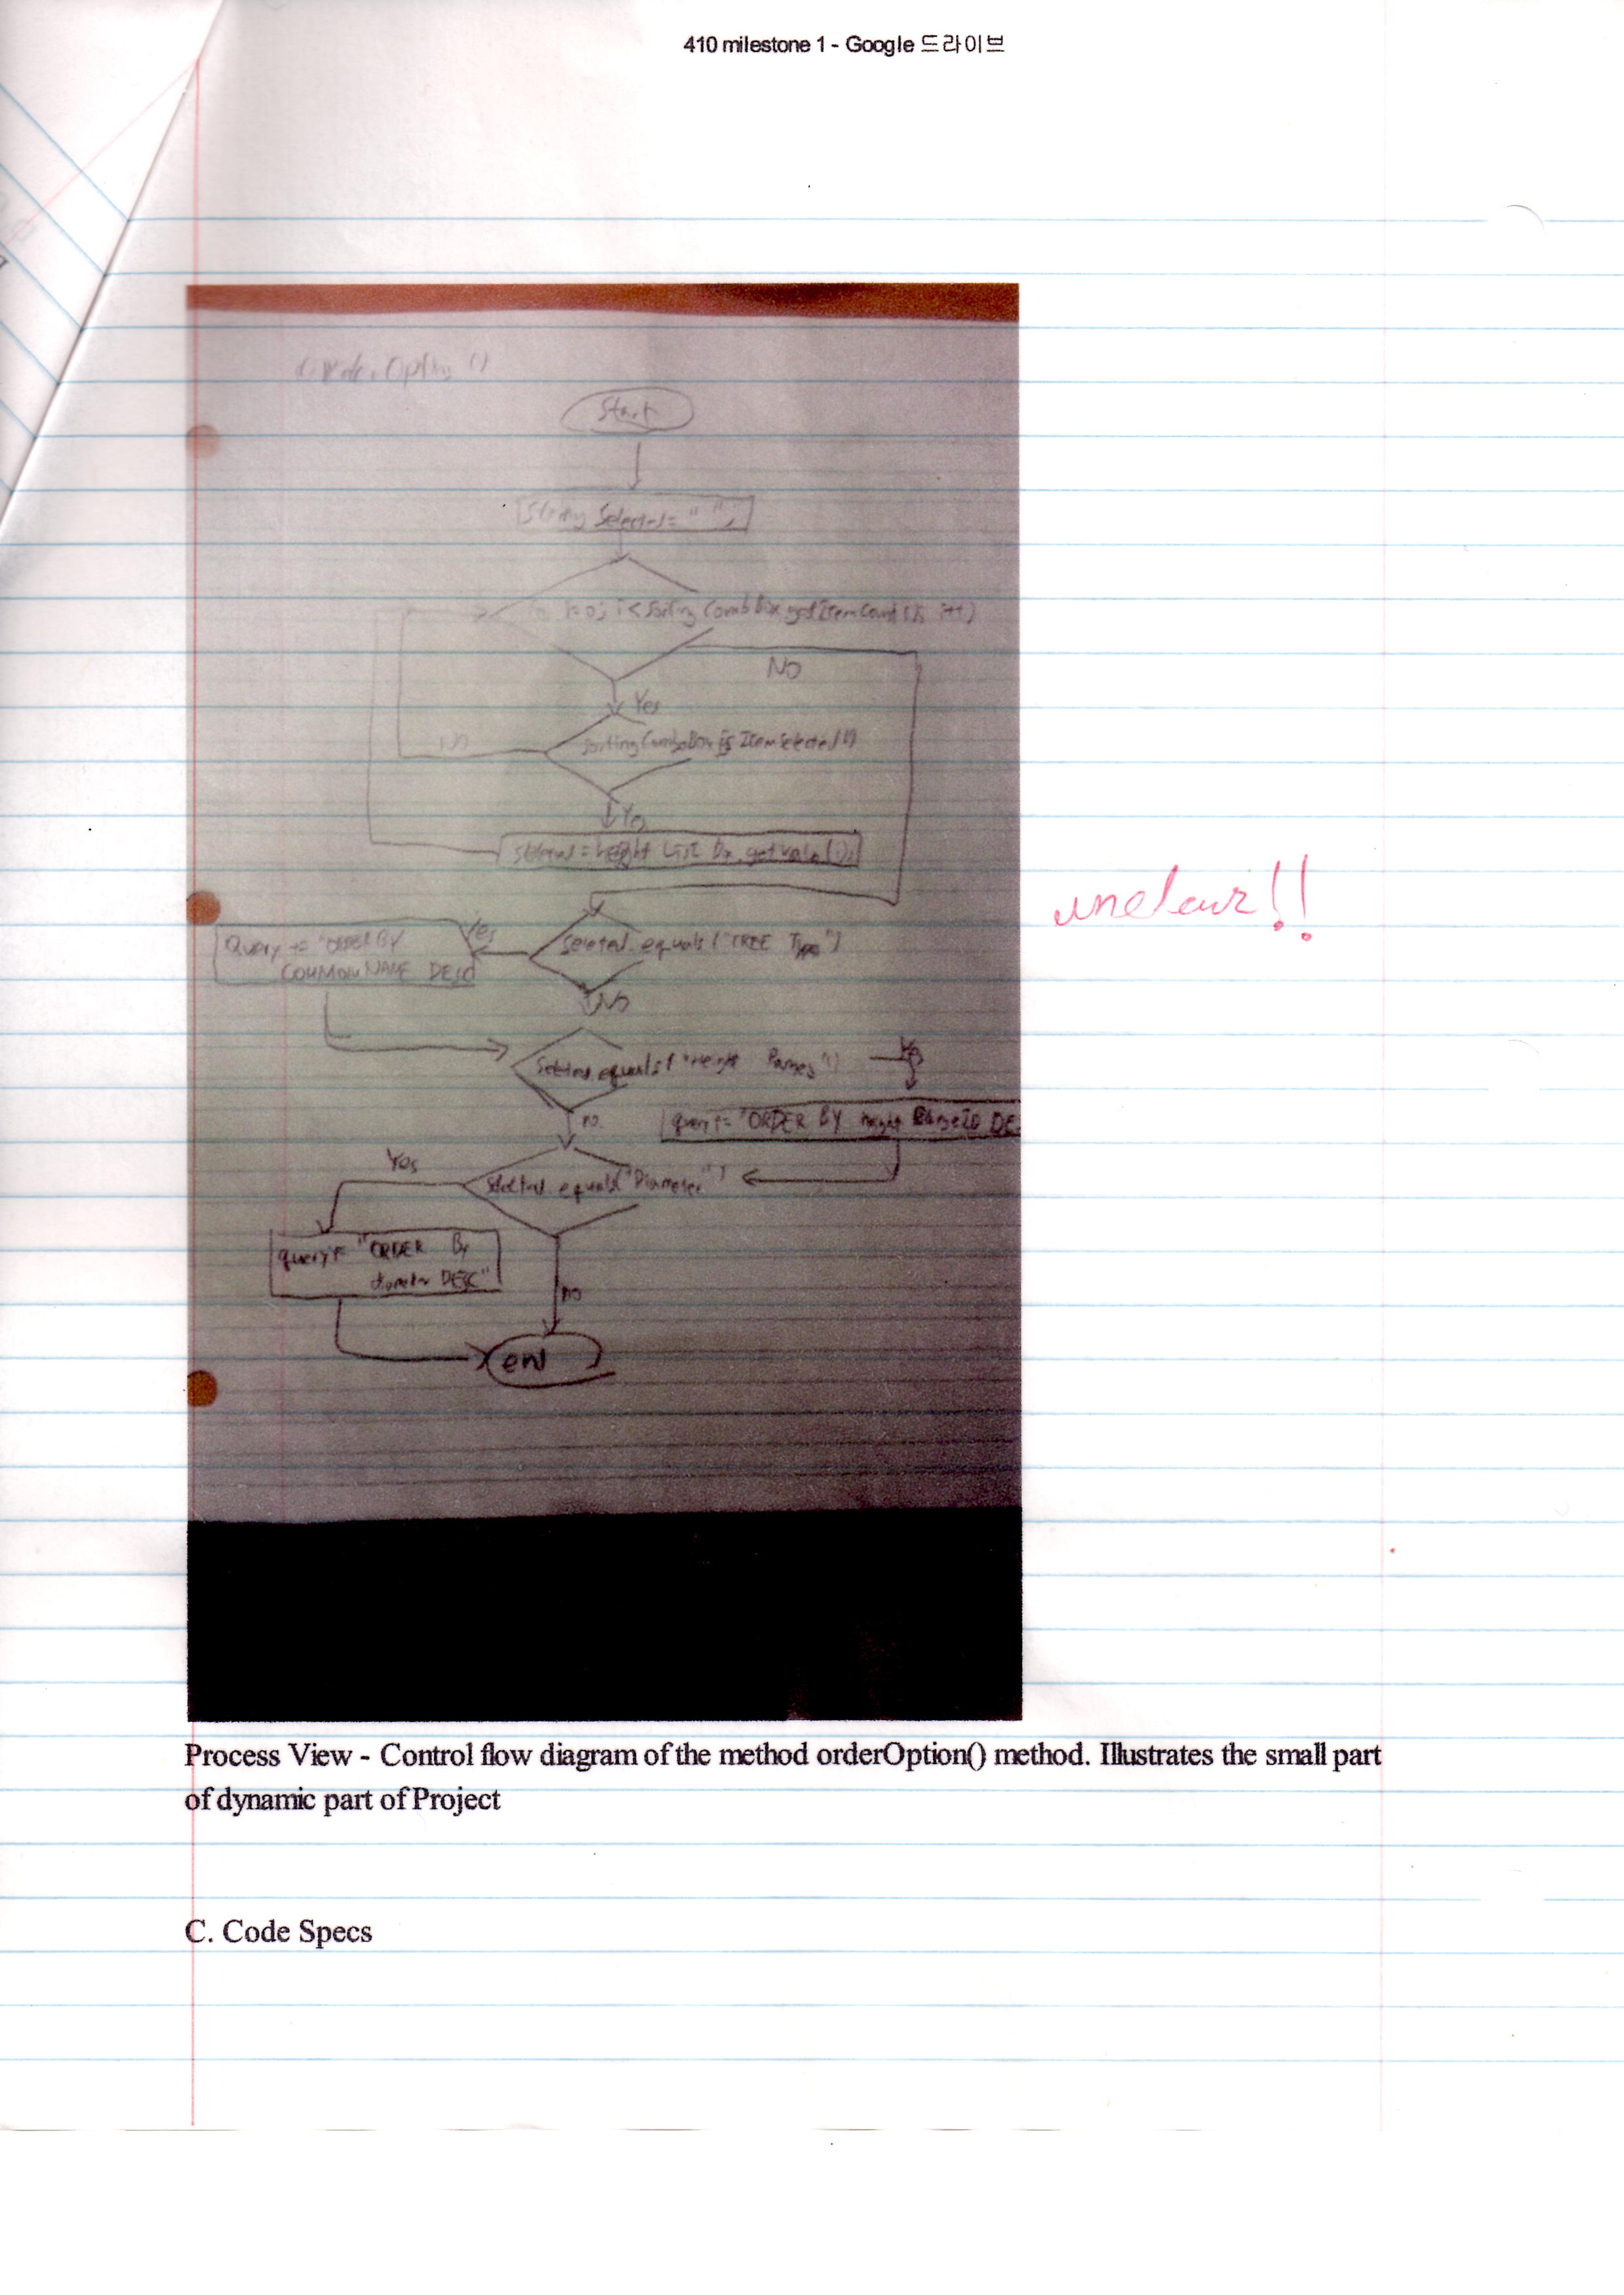 410 milestone 1 - Google 드라이브
Start
String Selected = " ";
i=0; i < Sorting ComboBox.getItemCount(); i++)
NO
Yes
sortingComboBox.isItemSelected()
NO
Yes
selected = height List Box.getValue(i);
unclear!!
selected.equals("TREE Type")
Yes
Query += "ORDER BY
COMMONNAME DESC
NO
Selected.equals("Height Ranges")
Yes
no
query+= "ORDER BY height RangeID DE
Yes
selected.equals("Diameter")
query+= "ORDER By
diameter DESC"
no
end
Process View - Control flow diagram of the method orderOption() method. Illustrates the small part
of dynamic part of Project
C. Code Specs